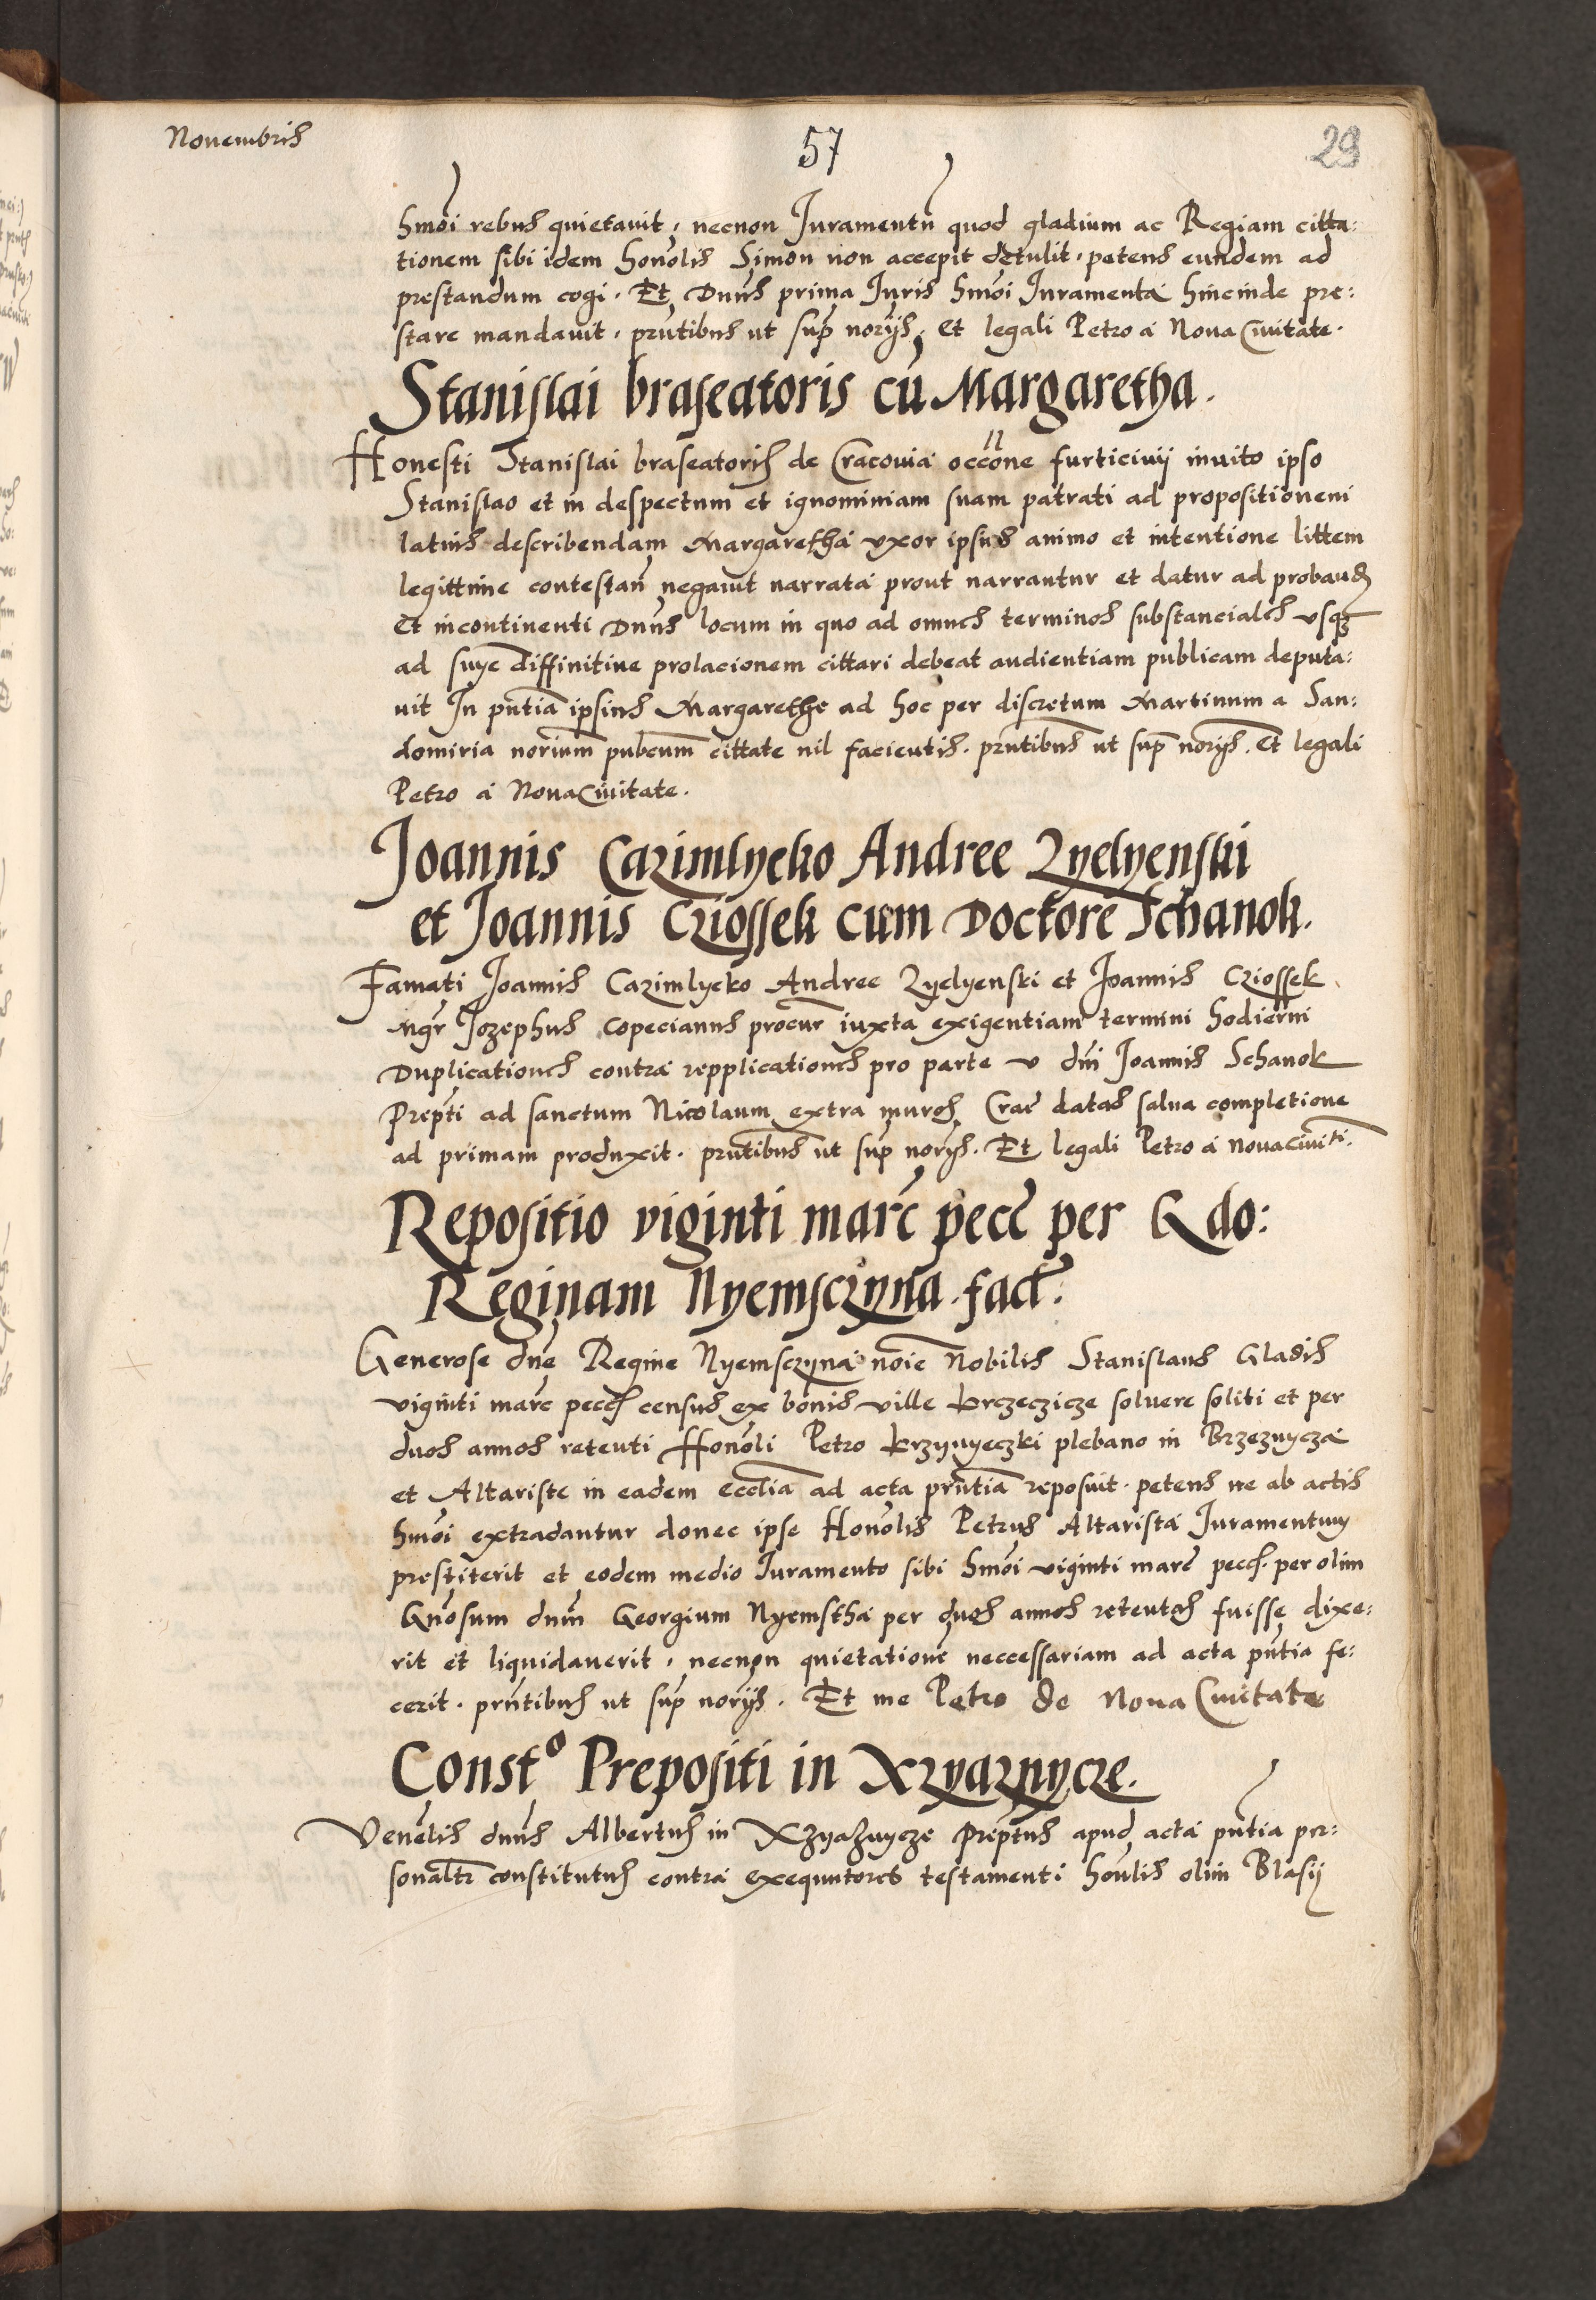 Novembris
57
29
hmõi rebus quietavit, necnon Juramentũ quod gladium ac Regiam citta:
tionem sibi idem honõlis Simon non accepit detulit. petens eundem ad
prestandum cogi. Et Dnũs prima Juris hmõi Juramenta hincinde pre:
stare mandavit. prñtibus ut sup̃ norijs, Et legali Petro a Nova Civitate.
Stanislai braseatoris cũ Margaretha.
Honesti Stanislai braseatoris de Cracovia occõne furticinij invito ipso
Stanislao et in despectum et ignominiam suam patrati ad propositionem
latius describendam Margaretha uxor ipsius animo et intentione littem
legittime contestañ negavit narrata prout narrantur et datur ad proband
Et incontinenti Dnũs locum in quo ad omnes terminos substanciales usqz
ad snỹe diffinitive prolacionem cittari debeat audientiam publicam deputa:
vit In pñtia ipsius Margarethe ad hoc per discretum Martinum a San:
domiria norium pubcum cittate nil facientis. prñtibus ut sup̃ norijs. Et legali
Petro a Nova Civitate.
Joannis Cazimlycko Andree Zyelyenski
et Joannis Cziossek cum Doctore Schanok.
Famati Joannis Cazimlycko Andree Zyelyenski et Joannis Cziossek
Mgr̃ Jozephus Copecianus procur̃ iuxta exigentiam termini hodierni
Duplicationes contra repplicationes pro parte v dñi Joannis Schanok
Prepti ad sanctum Nicolaum extra muros Crac̃ datas salva completione
ad primam produxit. prñtibus ut sup̃ norijs. Et legali Petro a nova civitti.
Repositio viginti marc̃ pecc̃ per G do:
Reginam Nyemsczyna fact̃.
Generose dñe Regine Nyemsczyna noĩe Nobilis Stanislaus Gladis
viginti marc̃ pecc census ex bonis ville Krzeczicze solvere soliti et per
duos annos retenti Honõli Petro Krzynyeczki plebano in Brzeznycza
et Altariste in eadem ecclia ad acta prñtia reposuit. petens ne ab actis
hmõi extradantur donec ipse Honõlis Petrus Altarista Juramentum
prestiterit et eodem medio Juramento sibi hmõi viginti marc̃ pecc. per olim
Gnõsum dnũm Georgium Nyemstha per duos annos retentos fuisse dixe:
rit et liquidaverit, necnon quietatione neccessariam ad acta pñtia fe:
cerit. prñtibus ut sup̃ norijs. Et me Petro de Nova Civitate
Constº Prepositi in Xzyaznycze.
Venẽlis dnũs Albertus in Xzyaznycze Preptus apud acta pñtia per:
sonaltr̃ constitutus contra exequutores testamenti hoñlis olim Blasij